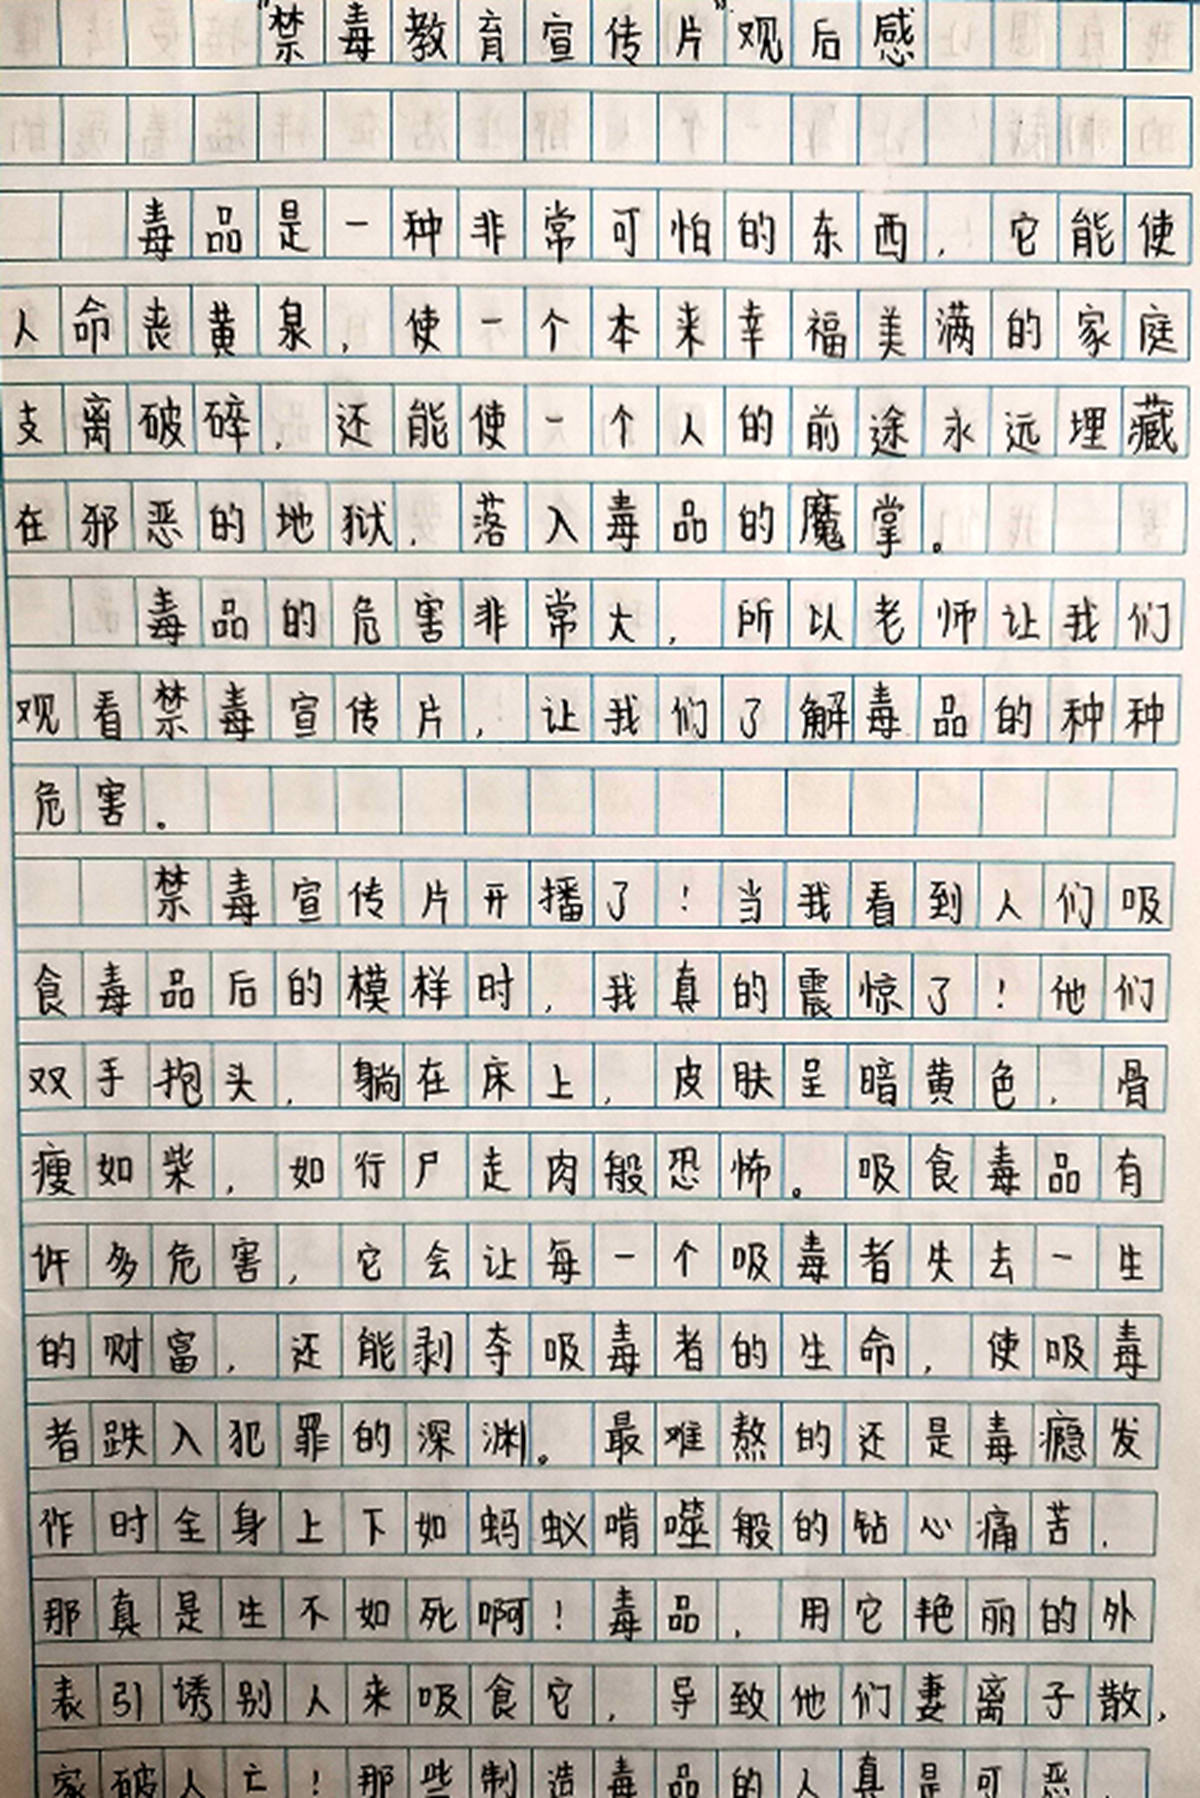 “禁毒教育宣传片”观后感
毒品是一种非常可怕的东西，它能使
人命丧黄泉，使一个本来幸福美满的家庭
支离破碎，还能使一个人的前途永远埋藏
在邪恶的地狱，落入毒品的魔掌。
毒品的危害非常大，所以老师让我们
观看禁毒宣传片，让我们了解毒品的种种
危害。
禁毒宣传片开播了！当我看到人们吸
食毒品后的模样时，我真的震惊了！他们
双手抱头，躺在床上，皮肤呈暗黄色，骨
瘦如柴，如行尸走肉般恐怖。吸食毒品有
许多危害，它会让每一个吸毒者失去一生
的财富，还能剥夺吸毒者的生命，使吸毒
者跌入犯罪的深渊。最难熬的还是毒瘾发
作时全身上下如蚂蚁啃噬般的钻心痛苦，
那真是生不如死啊！毒品，用它艳丽的外
表引诱别人来吸食它，导致他们妻离子散，
家破人亡！那些制造毒品的人真是可恶，